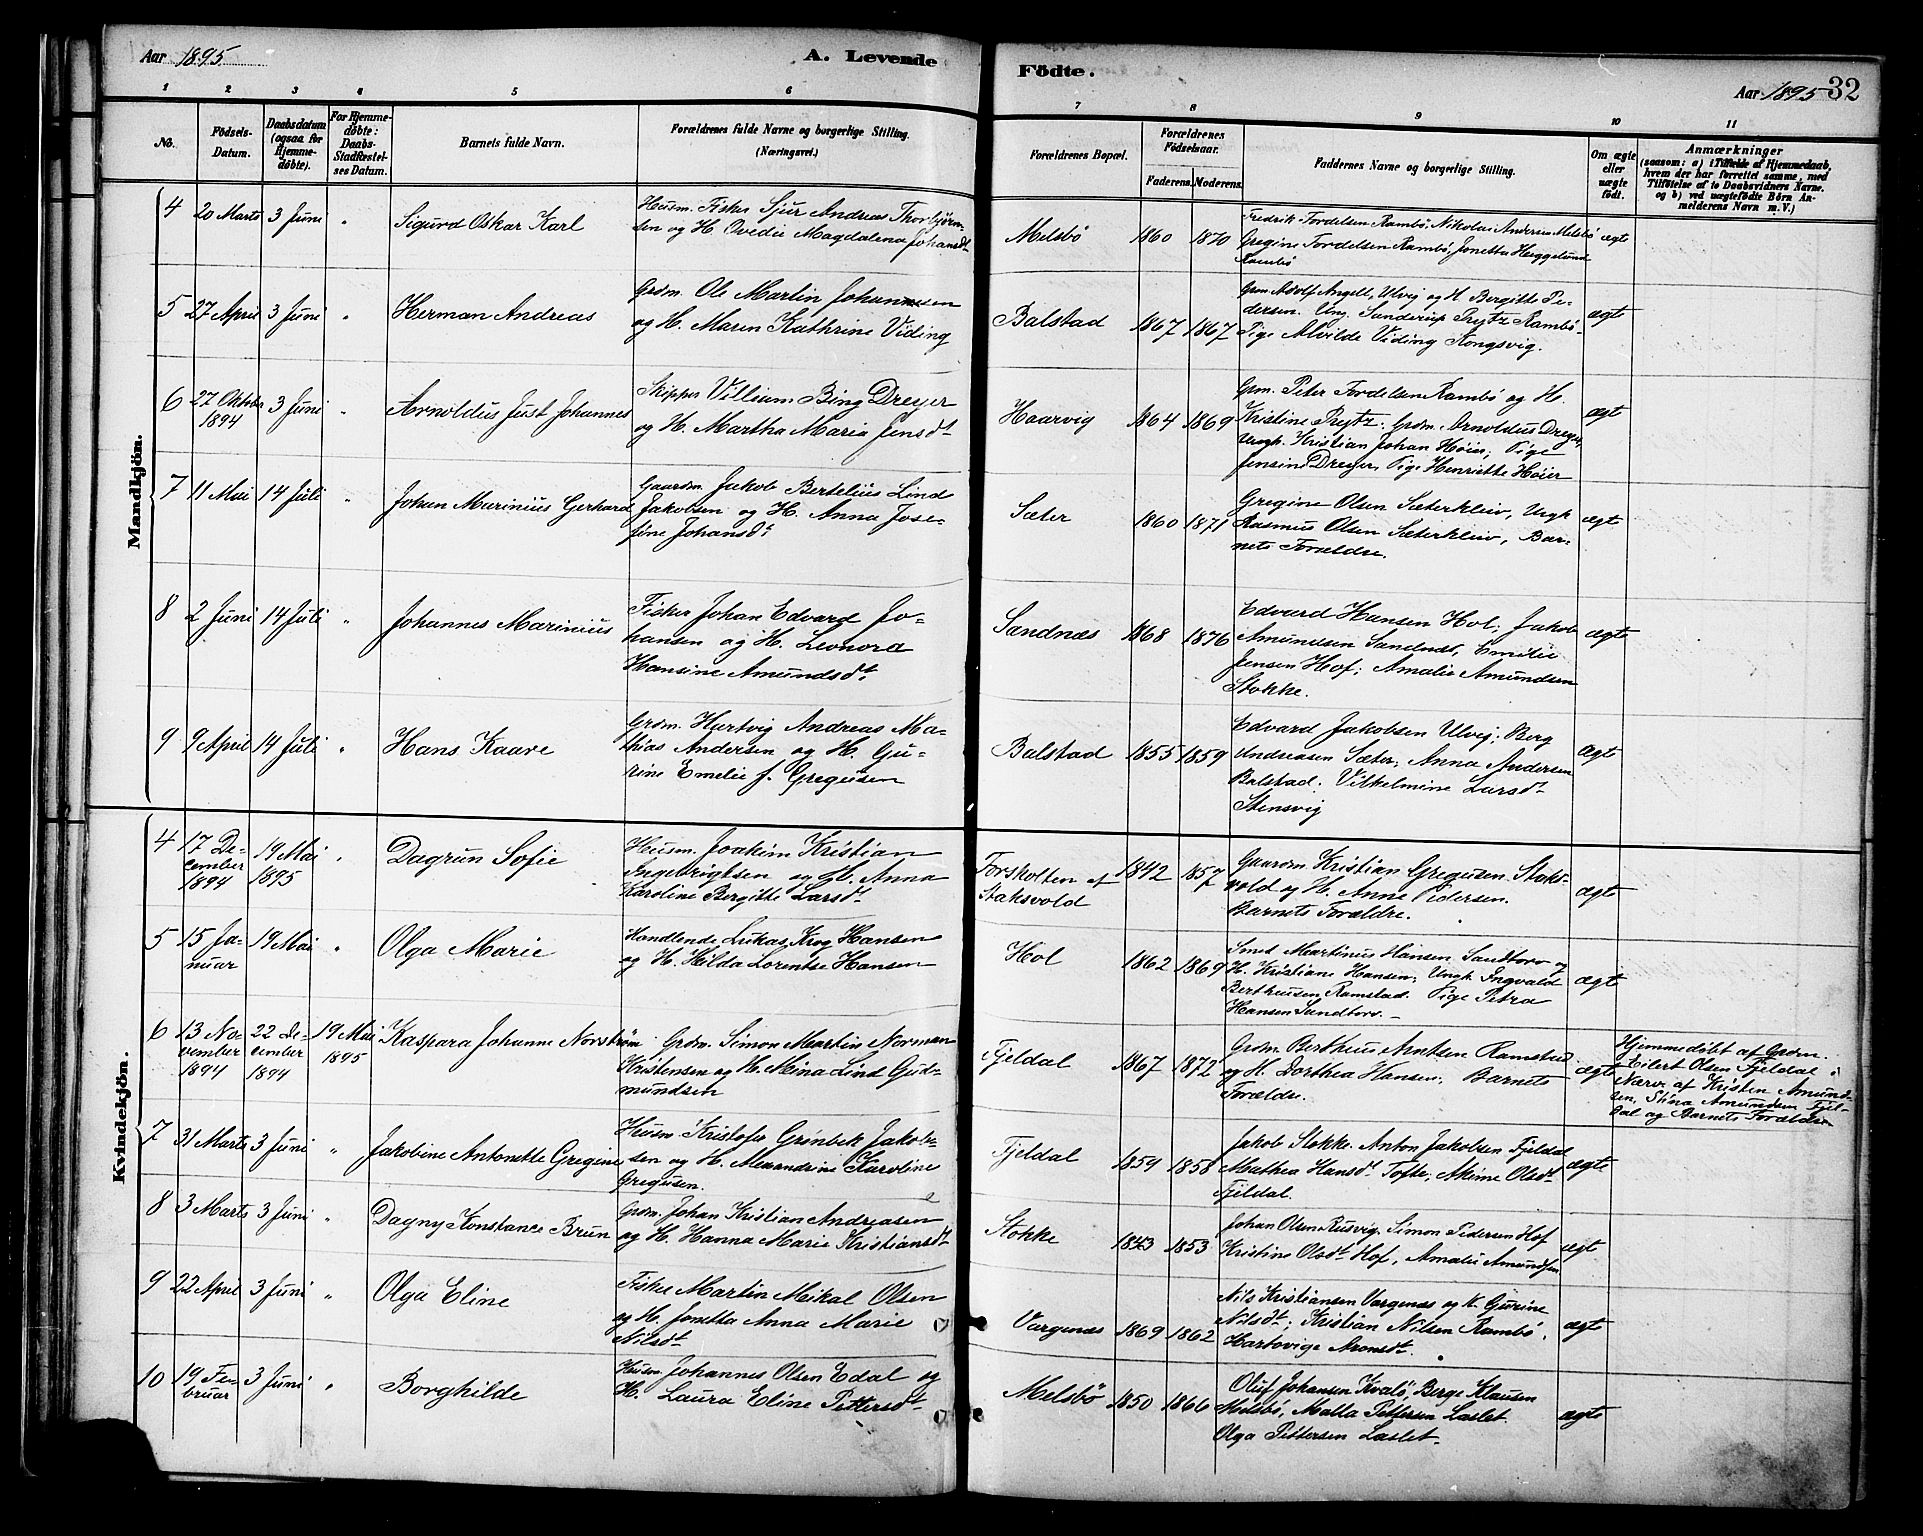 Aar 1895.
A. Levende
Födte.
Aar 1895
32
1 2 3 4 5 6 7 8 9 10 11
No.
Födsels-
Datum.
Daabsdatum
(ogsaa for
Hjemme-
döbte).
For Hjemme-
döbte:
Daabs-
Stadfæstel-
ses Datum.
Barnets fulde Navn.
Forældrenes fulde Navne og borgerlige Stilling.
(Næringsvei.)
Forældrenes Bopæl.
Forældrenes
Födselsaar.
Faderens. Moderens.
Faddernes Navne og borgerlige Stilling.
Om ægte
eller
uægte
födt.
Anmærkninger
(saasom: a) i Tilfælde af Hjemmedaab,
hvem der har forrettet samme, med
Tilföielse af to Daabsvidners Navne.
og b) ved uægtefödte Börn An-
melderens Navn m. V.)
Mandkjön.
4 20 Marts 3 Juni " Sigurd Oskar Karl
Husm. Fisker Sjur Andreas Thorbjörn-
sen og H. Ovedie Magdalena Johansdt
Melsbö 1860 1870
Fredrik Fordelsen Rambö, Nikolai Andersen Melsbö
Gregine Fordelsen Rambö, Jonetta Heggelund
Rambö
ægte
5 27 April 3 Juni " Herman Andreas
Grdm. Ole Martin Johannesen
og H. Maren Kathrine Viding
Balstad 1867 1867
Grm Adolf Angell, Ulvig og H. Bergitte Pe-
dersen. Ung. Sanderup Prytz Rambö-
Pige Alvilde Viding Kongsvig.
ægte
6 27 Oktober
1894
3 Juni " Arnoldus Just Johannes
Skipper Villium Bing Dreyer
og H. Martha Maria Jensdt
Haarvig 1864 1869
Grm. Peter Fordelsen Rambö og H.
Kristine Prytz. Grdm. Arnoldus Dreyer,
Ungk. Kristian Johan Höier; Pige
Jensine Dreyer, Pige Henrikke Höier
ægt
7 11 Mai 14 Juli " Johan Marinius Gerhard
Gaardm. Jakob Bertelius Lind
Jakobsen og H. Anna Jose-
fine Johansdt
Sæter 1860 1871
Gregine Olsen Sæterkleiv, Ungk
Rasmus Olsen Sæterkleiv, Bar-
nets Forældre.
ægte
8 2 Juni 14 Juli " Johannes Marinius
Fisker Johan Edvard Jo-
hansen og H. Leonora
Hansine Amundsdt
Sandnæs 1868 1876
Edvard Hansen Hol; Jakob
Amundsen Sandnæs, Emilie
Jensen Hof; Amalie Amundsen
Stokke.
ægte
9 9 April 14 Juli " Hans Kaare
Grdm. Hartvig Andreas Ma-
thias Andersen og H. Gu-
rine Emelie f. Gregusen
Balstad 1855 1859
Edvard Jakobsen Ulvij; Berg
Andreasen Sæter; Anna Andersen
Balstad. Vilhelmine Larsdt
Stensvig
ægte
Kvindekjön.
4 17 De-
cember
1894
19 Mai
1895
" Dagrun Sofie
Husm. Joakim Kristian
Ingebrigtsen og H. Anna
Karoline Bergitte Larsdt
Forsholten af
Staksvold
1842 1857
Gaardm Kristian Gregusen Staks-
vold og H. Anne Pedersen.
Barnets Forældre.
ægte
5 15 Ja-
nuar
19 Mai " Olga Marie
Handlende Lukas Krog Hansen
og H. Hilda Lorentse Hansen
Hol 1862 1869
Smed Martinus Hansen Sandtorv og
H. Kristiane Hansen; Ungk. Ingvald
Bertheusen Ramstad. Pige Petra
Hansen Sandtorv.
ægte
6 13 No-
vember
1894
22 De-
cember
1894
19 Mai
1895
Kaspara Johanne Norström
Grdm. Simon Martin Norman
Kristensen og H. Mina Lind Gud-
mundsen
Fjeldal 1867 1872
Grdm Bertheus Arntsen Ramstad
og H. Dorthea Hansen; Barnets
Forældre.
ægte
Hjemmedöbt af Grdm.
Eilert Olsen Fjeldal i
Nærv. af Kristen Amund-
sen, Stina Amundsen Fjel-
dal og Barnets Forældre
7 31 Marts 3 Juni " Jakobine Antonette Gregine
Husm Kristofer Grönbek Jakob-
sen og H. Alexandrine Karoline
Gregusen.
Fjeldal 1859 1858
Jakob Stokke. Anton Jakobsen Fjeldal
Mathea Hansdt Tofte; Akime Olsdt
Fjeldal.
ægte
8 3 Marts 3 Juni " Dagny Konstance Brun
Grdm. Johan Kristian Andreasen
og H. Hanna Marie Kristiansdt
Stokke 1843 1853
Johan Olsen Rusvig. Simon Pedersen Hof
Kristine Olsdt Hof, Amalie Amundsen
ægt
9 22 April 3 Juni " Olga Eline
Fisker Martin Mikal Olsen
og H. Jonetta Anna Marie
Nilsdt
Vargenæs 1869 1862
Nils Kristiansen Vargenæs og H. Gjurine
Nilsdt; Kristian Nilsen Rambö,
Hartovige Aronsdt.
ægt
10 19 Fe-
bruar
3 Juni " Borghilde
Husm Johannes Olsen Edal og
H. Laura Eline Pettersdt
Melsbö 1850 1866
Oluf Johansen Kvalö, Berge Klausen
Melsbö, Malla Pettersen Laslet
Olga Pettersen Laslet.
ægte